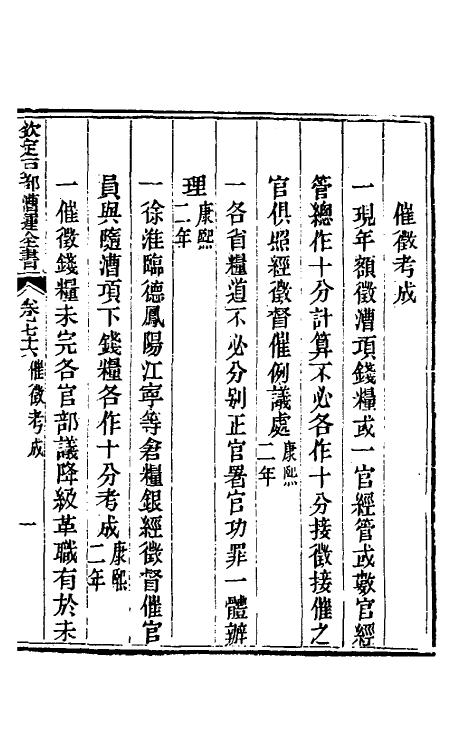 催徵考成
一現年額徵漕項錢糧或一官經管或數官經
管總作十分計算不必各作十分接徵接催之
官俱照經徵督催例議處康熙二年
一各省糧道不必分别正官署官功罪一體辦
理康熙二年
一徐淮臨德鳳陽江寧等倉糧銀經徵督催官
員與隨漕項下錢糧各作十分考成康熙二年
一催徵錢糧未完各官部議降級革職有於未
欽定戶部漕運全書 卷七十六 催徵考成 一